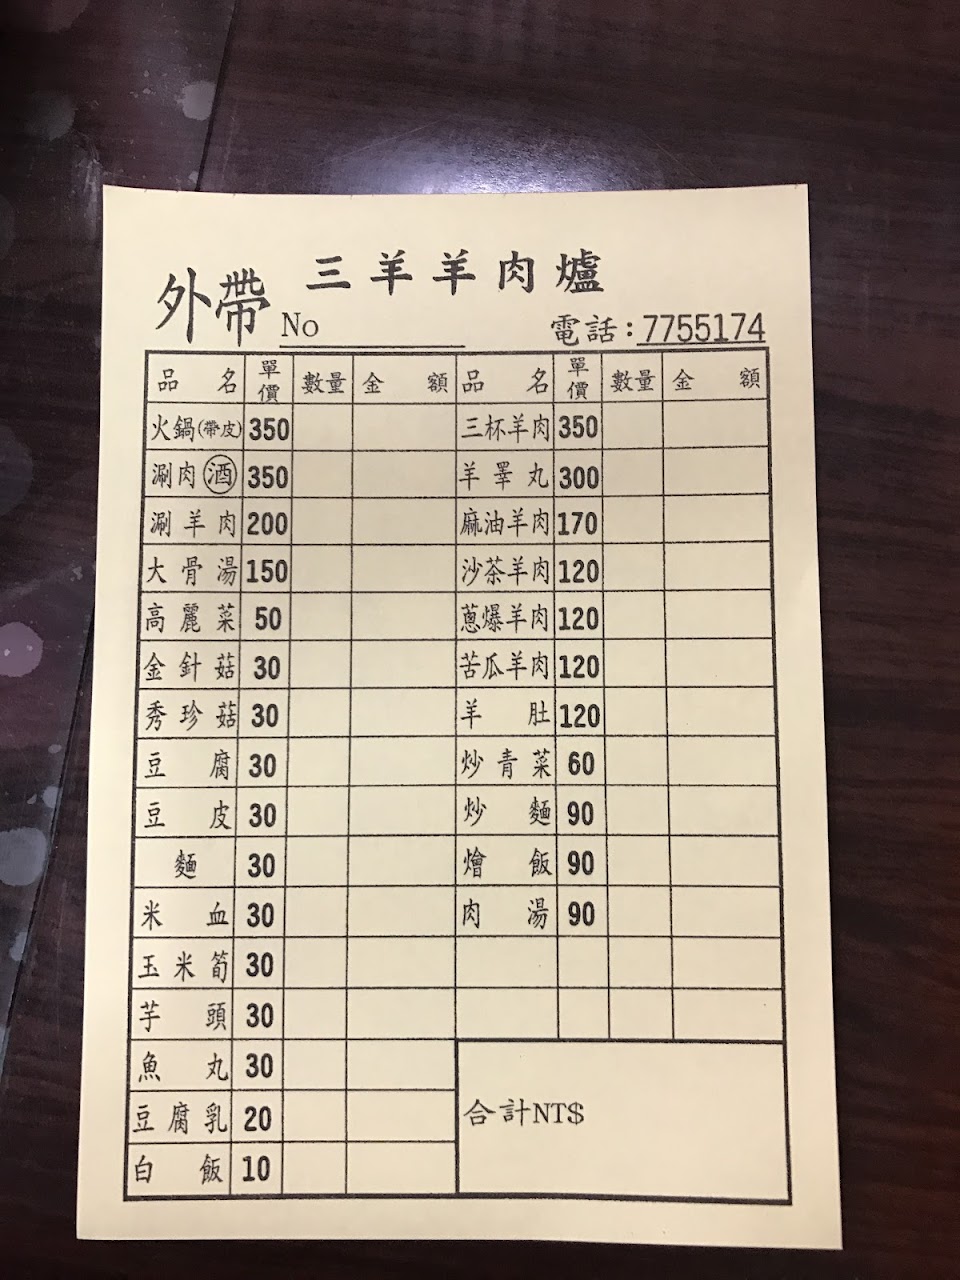 三羊羊肉爐
外帶 No 電話:7755174
品名 單價 數量 金額 品名 單價 數量 金額
火鍋(帶皮) 350 三杯羊肉 350
涮肉酒 350 羊睪丸 300
涮羊肉 200 麻油羊肉 170
大骨湯 150 沙茶羊肉 120
高麗菜 50 蔥爆羊肉 120
金針菇 30 苦瓜羊肉 120
秀珍菇 30 羊肚 120
豆腐 30 炒青菜 60
豆皮 30 炒麵 90
麵 30 燴飯 90
米血 30 肉湯 90
玉米筍 30
芋頭 30
魚丸 30
豆腐乳 20
白飯 10
合計NT$